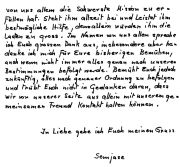 von uns allem die Schwerste Mission zu er-
füllen hat. Steht ihm allzeit bei und leistet ihm
bestmögliche Hilfe, denn allein würden ihm die
Lasten zu gross. Im Namen von uns allen spreche
ich Euch grossen Dank aus, insbesondere aber
danke ich mich für Eure bisherigen Bemühen,
auch wenn nicht immer alles genau nach unseren
Bestimmungen befolgt wurde. Bemüht Euch jedoch
zukünftig, alles nach genauer Ordnung zu befolgen
und trübt Euch nicht in Gedanken daran, dass
wir von unserer Seite aus allein mit unserem ge-
meinsamen Freund Kontakt halten können.
In Liebe gebe ich Euch meinen Gruss
Semjase